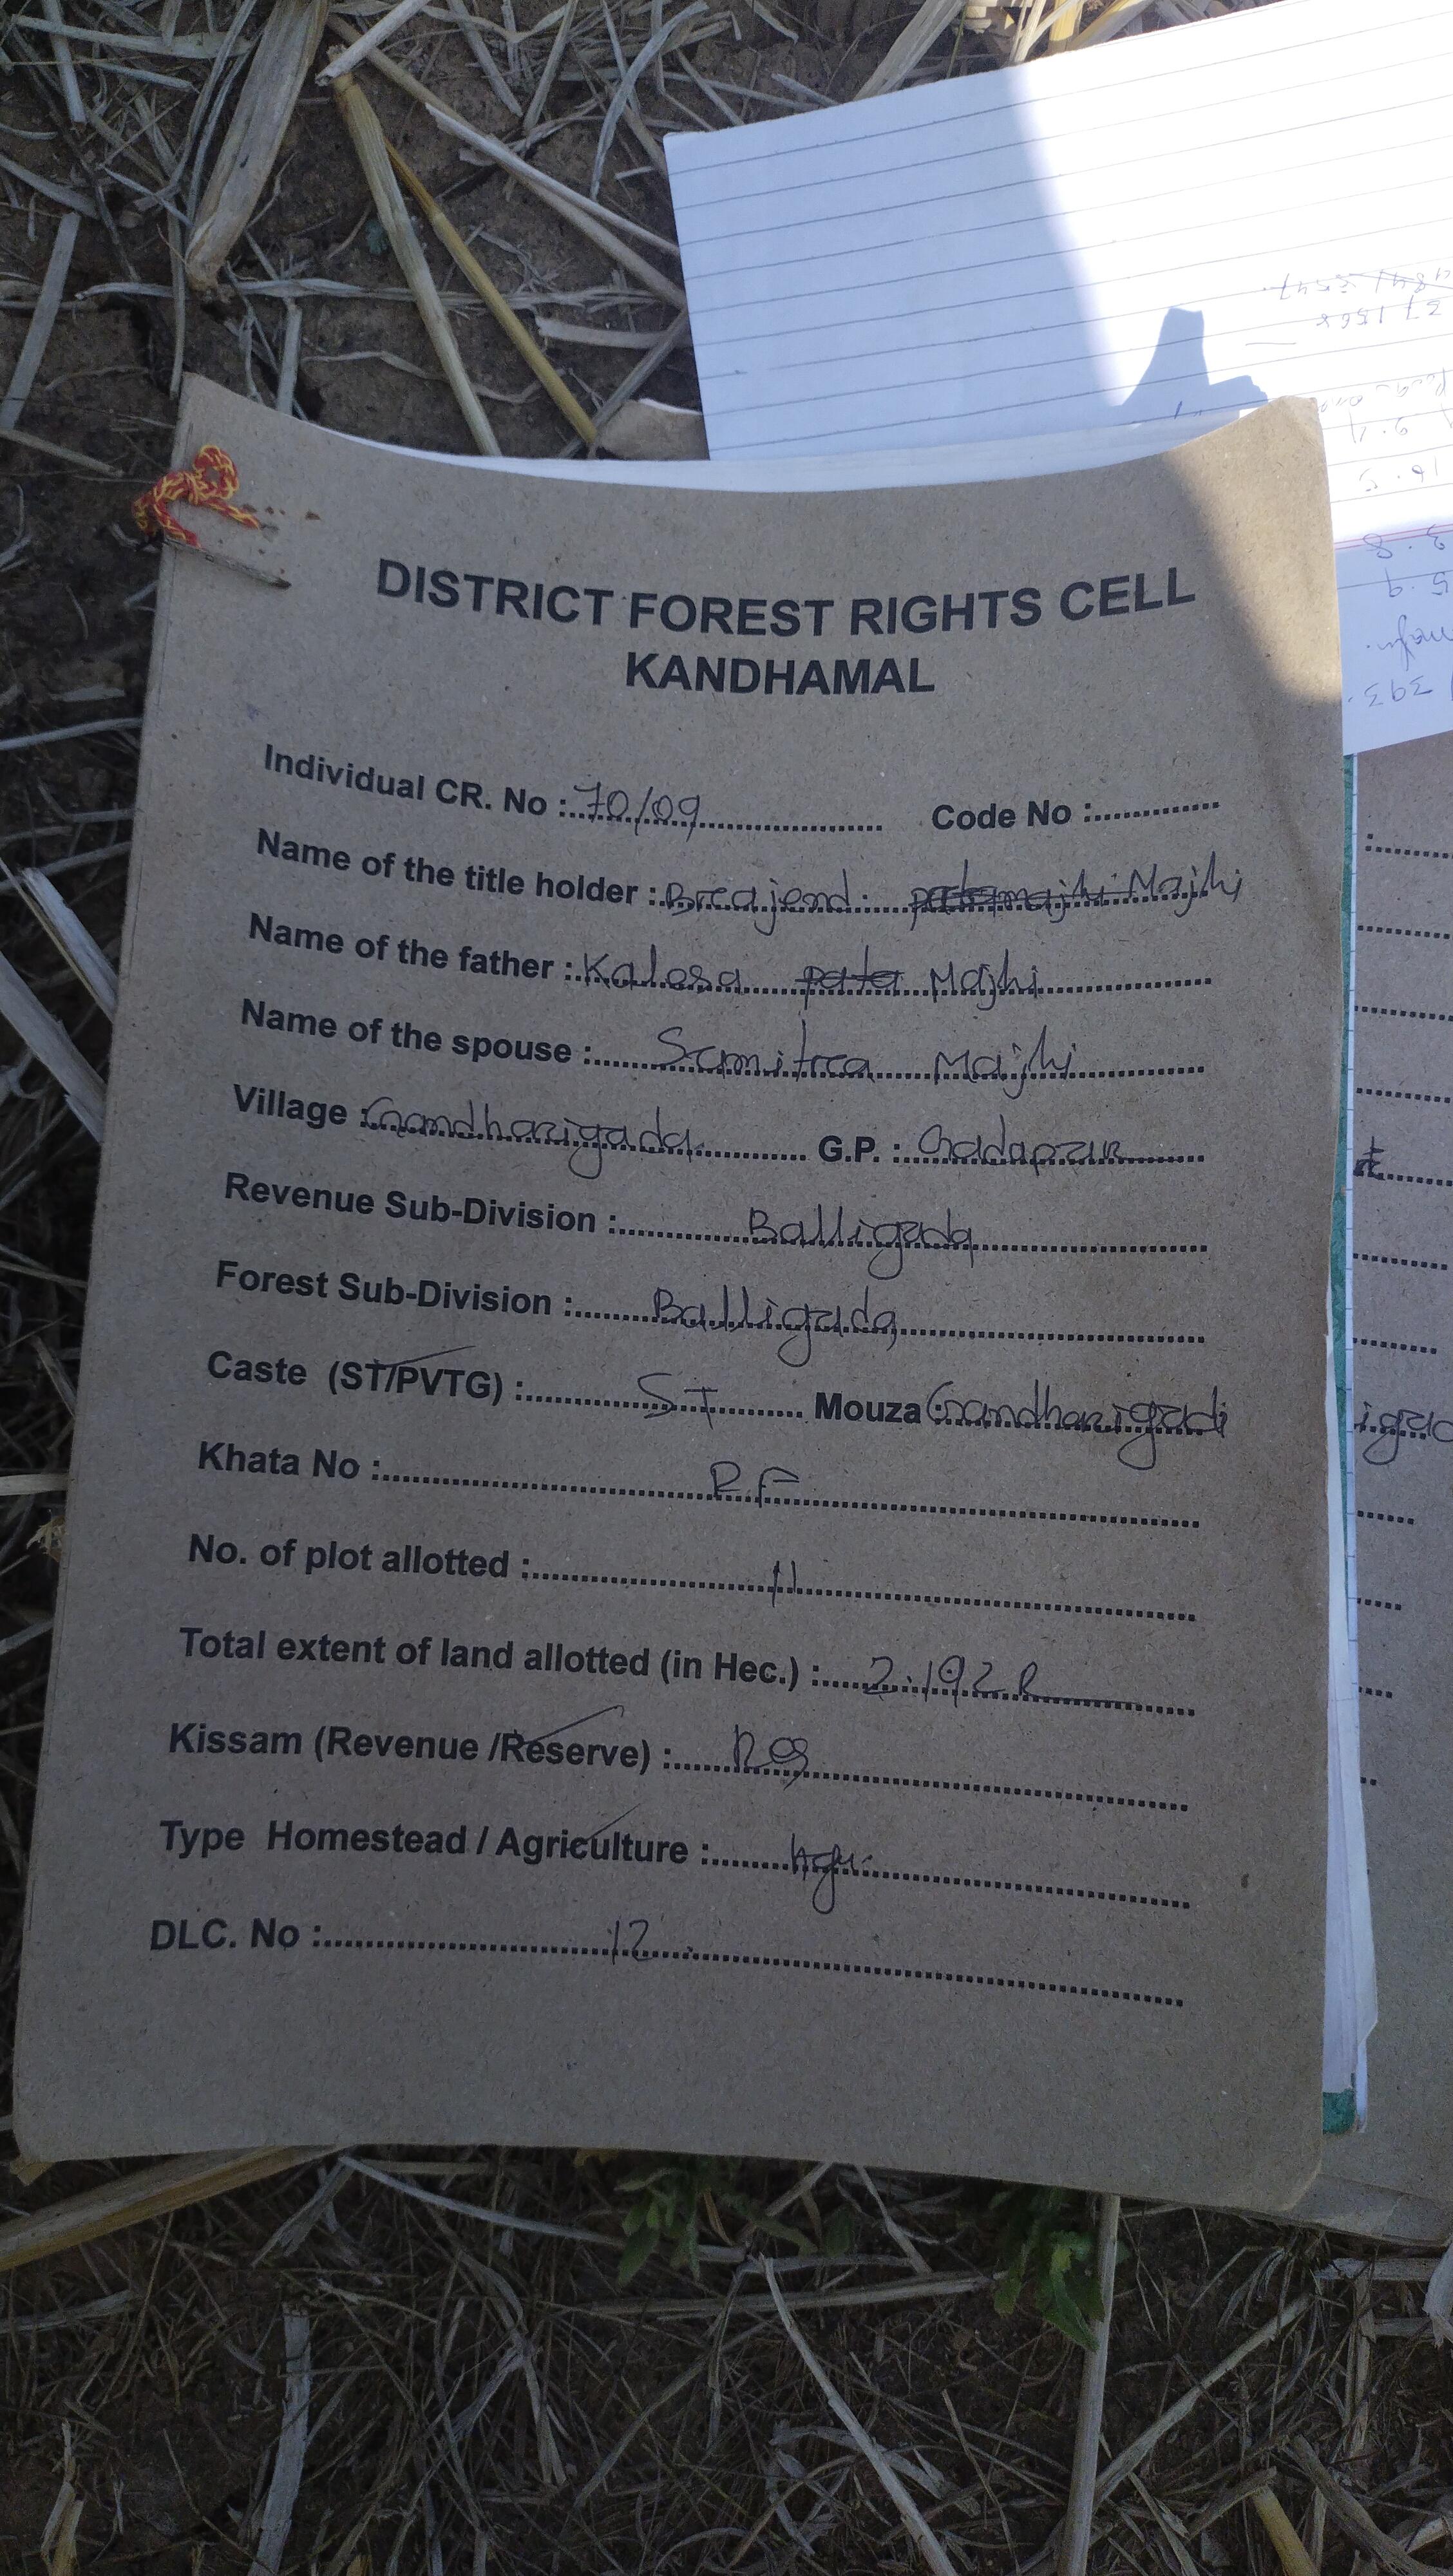 DISTRICT FOREST RIGHTS CELL
KANDHAMAL
Individual CR. No : 70/09 Code No :
Name of the title holder : Breajend. Majhi
Name of the father : Kalesa pata Majhi
Name of the spouse : Sumitrea Majhi
Village : Gandharigada G.P. : Gadapur
Revenue Sub-Division : Balliguda
Forest Sub-Division : Balliguda
Caste (ST/PVTG) : ST Mouza Gandharigudi
Khata No : RF
No. of plot allotted : 11
Total extent of land allotted (in Hec.) : 2.192
Kissam (Revenue /Reserve) : Res
Type Homestead / Agriculture : Agr.
DLC. No : 12